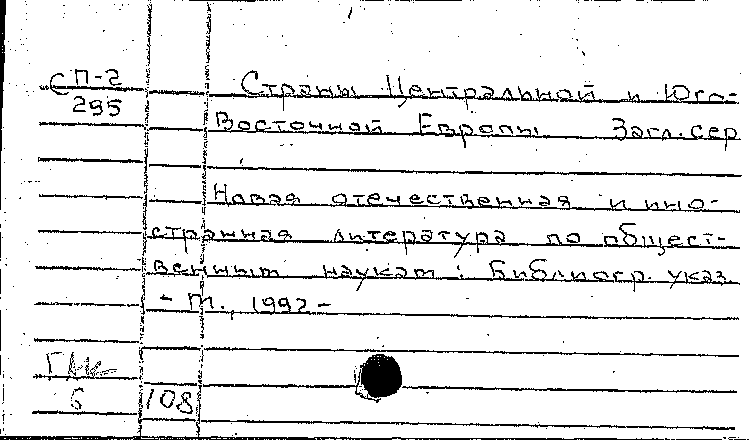 С П-2
295
Страны Центральной и Юго-
Восточной Европы Загл. сер
Новая отечественная и ино-
странная литература по общест-
венным наукам : Библиогр. указ.
- М., 1992 -
6 108